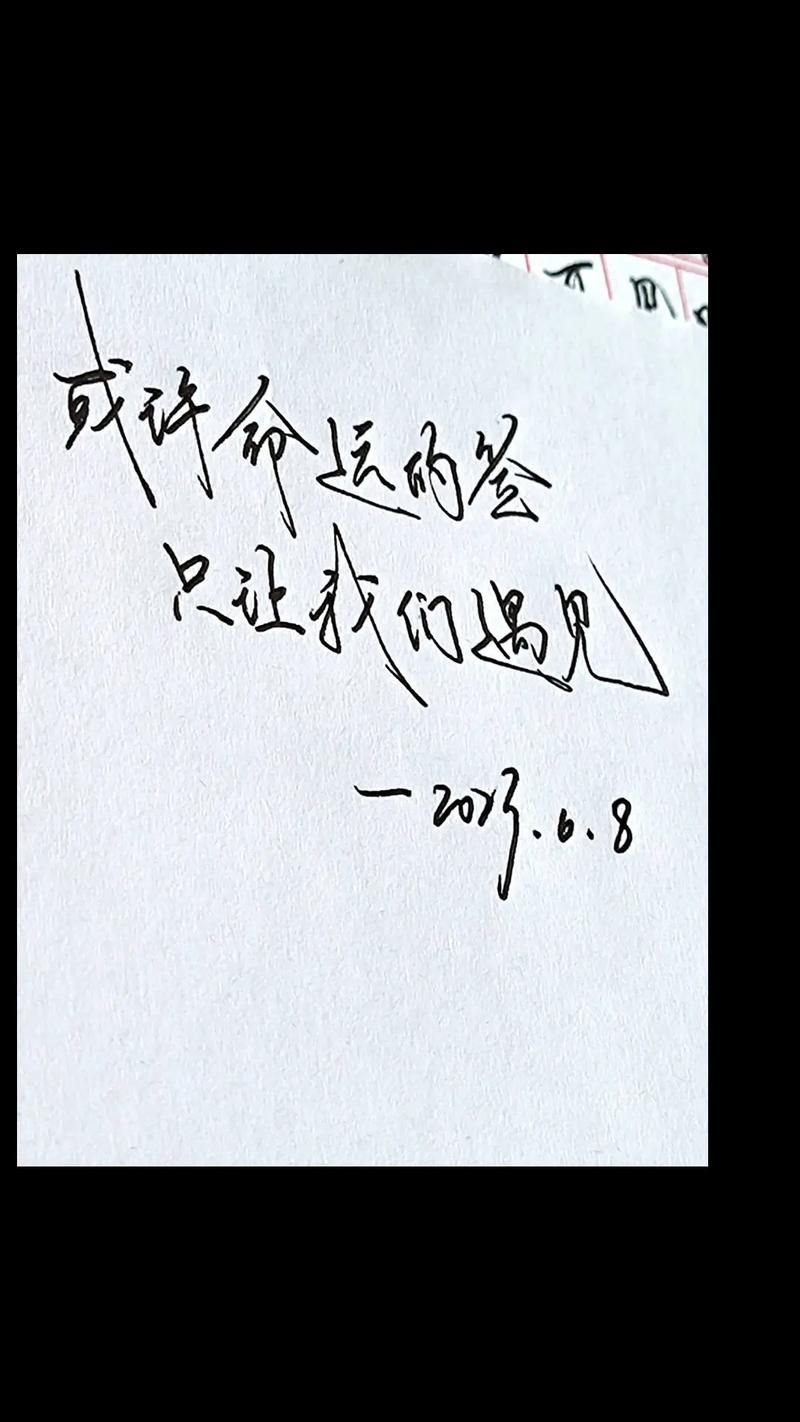 或许命运的签
只让我们遇见
一2023.6.8